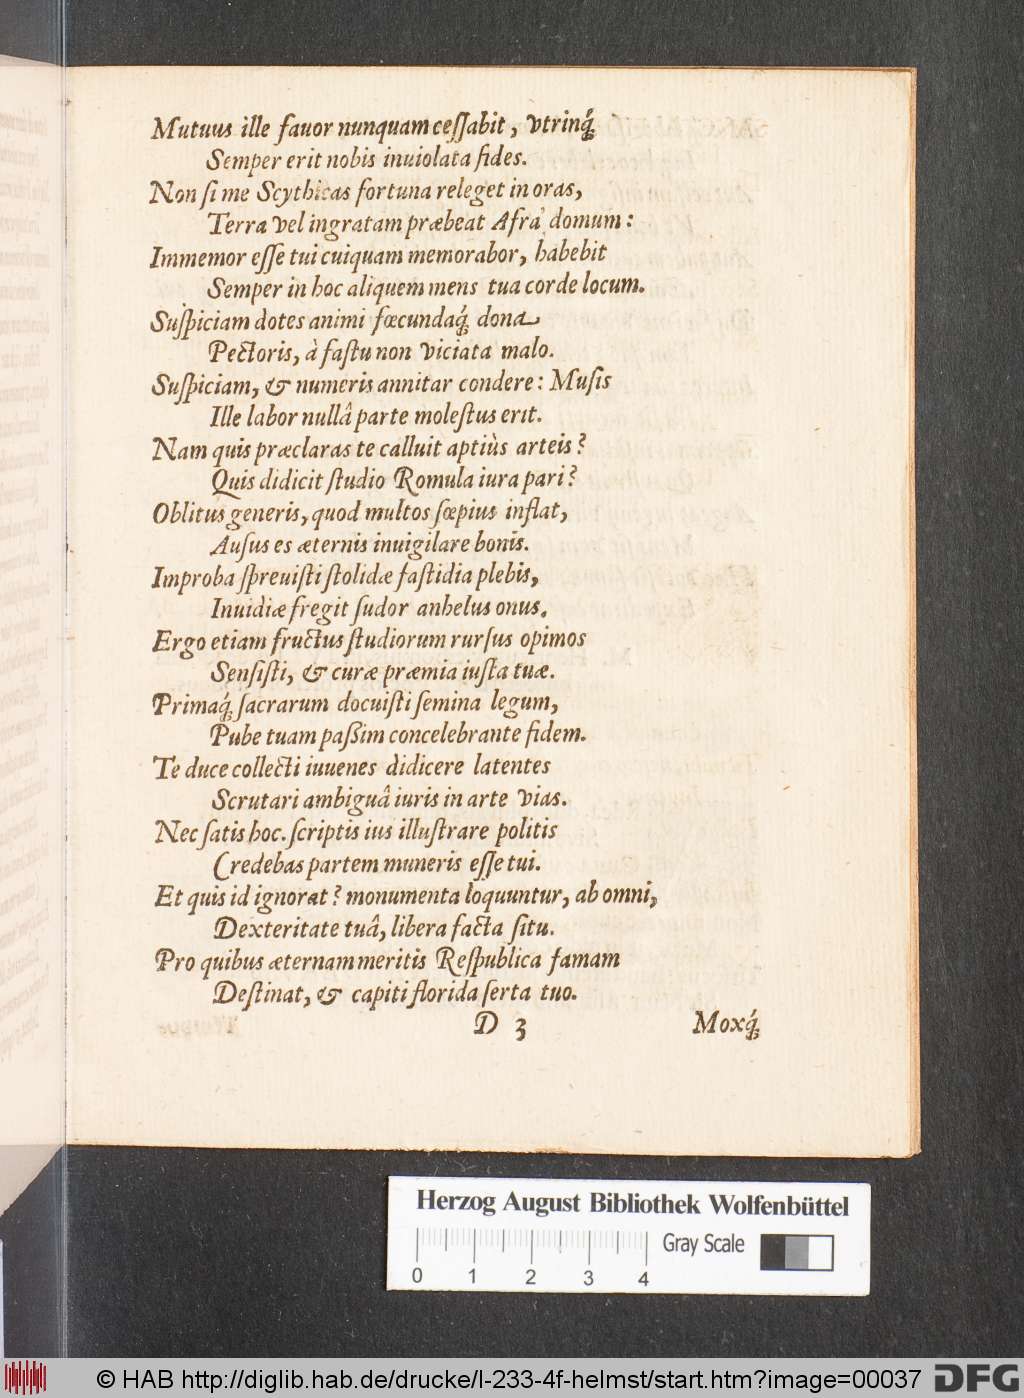 Mutuus ille fauor nunquam ceſſabit, vtrinq́;
Semper erit nobis inuiolata fides.
Non ſi me Scythicas fortuna releget in oras,
Terra vel ingratam præbeat Afra domum:
Immemor eſſe tui cuiquam memorabor, habebit
Semper in hoc aliquem mens tua corde locum.
Suſpiciam dotes animi fœcundaq́; dona
Pectoris, à faſtu non viciata malo.
Suſpiciam, & numeris annitar condere: Muſis
Ille labor nullâ parte moleſtus erit.
Nam quis præclaras te calluit aptiùs arteis?
Quis didicit ſtudio Romula iura pari?
Oblitus generis, quod multos ſœpius inflat,
Auſus es æternis inuigilare bonis.
Improba ſpreuiſti ſtolidæ faſtidia plebis,
Inuidiæ fregit ſudor anhelus onus.
Ergo etiam fructus ſtudiorum rurſus opimos
Senſiſti, & curæ præmia iuſta tuæ.
Primaq́; ſacrarum docuiſti ſemina legum,
Pube tuam paßim concelebrante fidem.
Te duce collecti iuuenes didicere latentes
Scrutari ambiguâ iuris in arte vias.
Nec ſatis hoc. ſcriptis ius illuſtrare politis
Credebas partem muneris eſſe tui.
Et quis id ignorat? monumenta loquuntur, ab omni,
Dexteritate tuâ, libera facta ſitu.
Pro quibus æternam meritis Reſpublica famam
Deſtinat, & capiti florida ſerta tuo.
D 3 Moxq́;
Herzog August Bibliothek Wolfenbüttel
Gray Scale
0 1 2 3 4
© HAB http://diglib.hab.de/drucke/l-233-4f-helmst/start.htm?image=00037
DFG